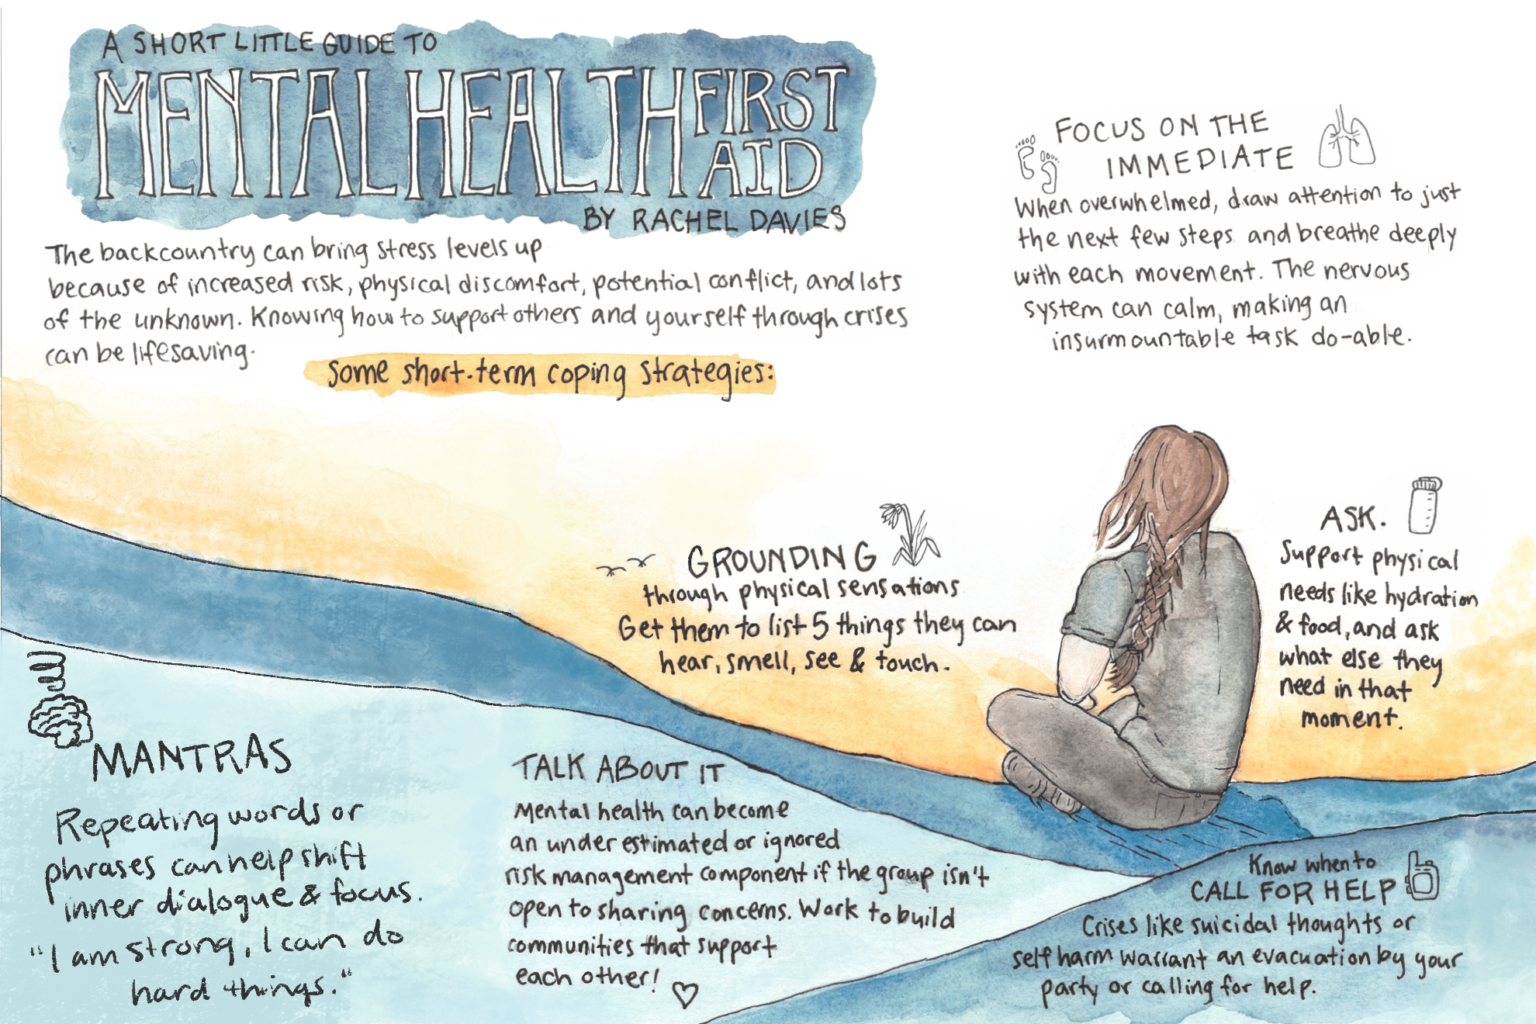 A SHORT LITTLE GUIDE TO
MENTAL HEALTH FIRST AID
BY RACHEL DAVIES
The backcountry can bring stress levels up
because of increased risk, physical discomfort, potential conflict, and lots
of the unknown. Knowing how to support others and yourself through crises
can be lifesaving.
Some short-term coping strategies:
FOCUS ON THE
IMMEDIATE
When overwhelmed, draw attention to just
the next few steps and breathe deeply
with each movement. The nervous
system can calm, making an
insurmountable task do-able.
GROUNDING
through physical sensations
Get them to list 5 things they can
hear, smell, see & touch.
ASK.
Support physical
needs like hydration
& food, and ask
what else they
need in that
moment.
MANTRAS
Repeating words or
phrases can help shift
inner dialogue & focus.
"I am strong, I can do
hard things."
TALK ABOUT IT
Mental health can become
an underestimated or ignored
risk management component if the group isn't
open to sharing concerns. Work to build
communities that support
each other!
Know when to
CALL FOR HELP
Crises like suicidal thoughts or
self harm warrant an evacuation by your
party or calling for help.